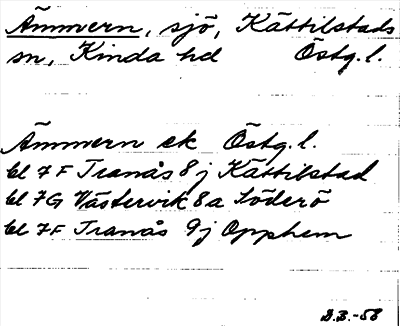 Ämmern, sjö, Kättilstads
sn, Kinda hd Östg.l.
Ämmern ek Östg.l.
bl 7F Tranås 8j Kättilstad
bl 7G Västervik 8a Söderö
bl 7F Tranås 9j Opphem
B.B.-58